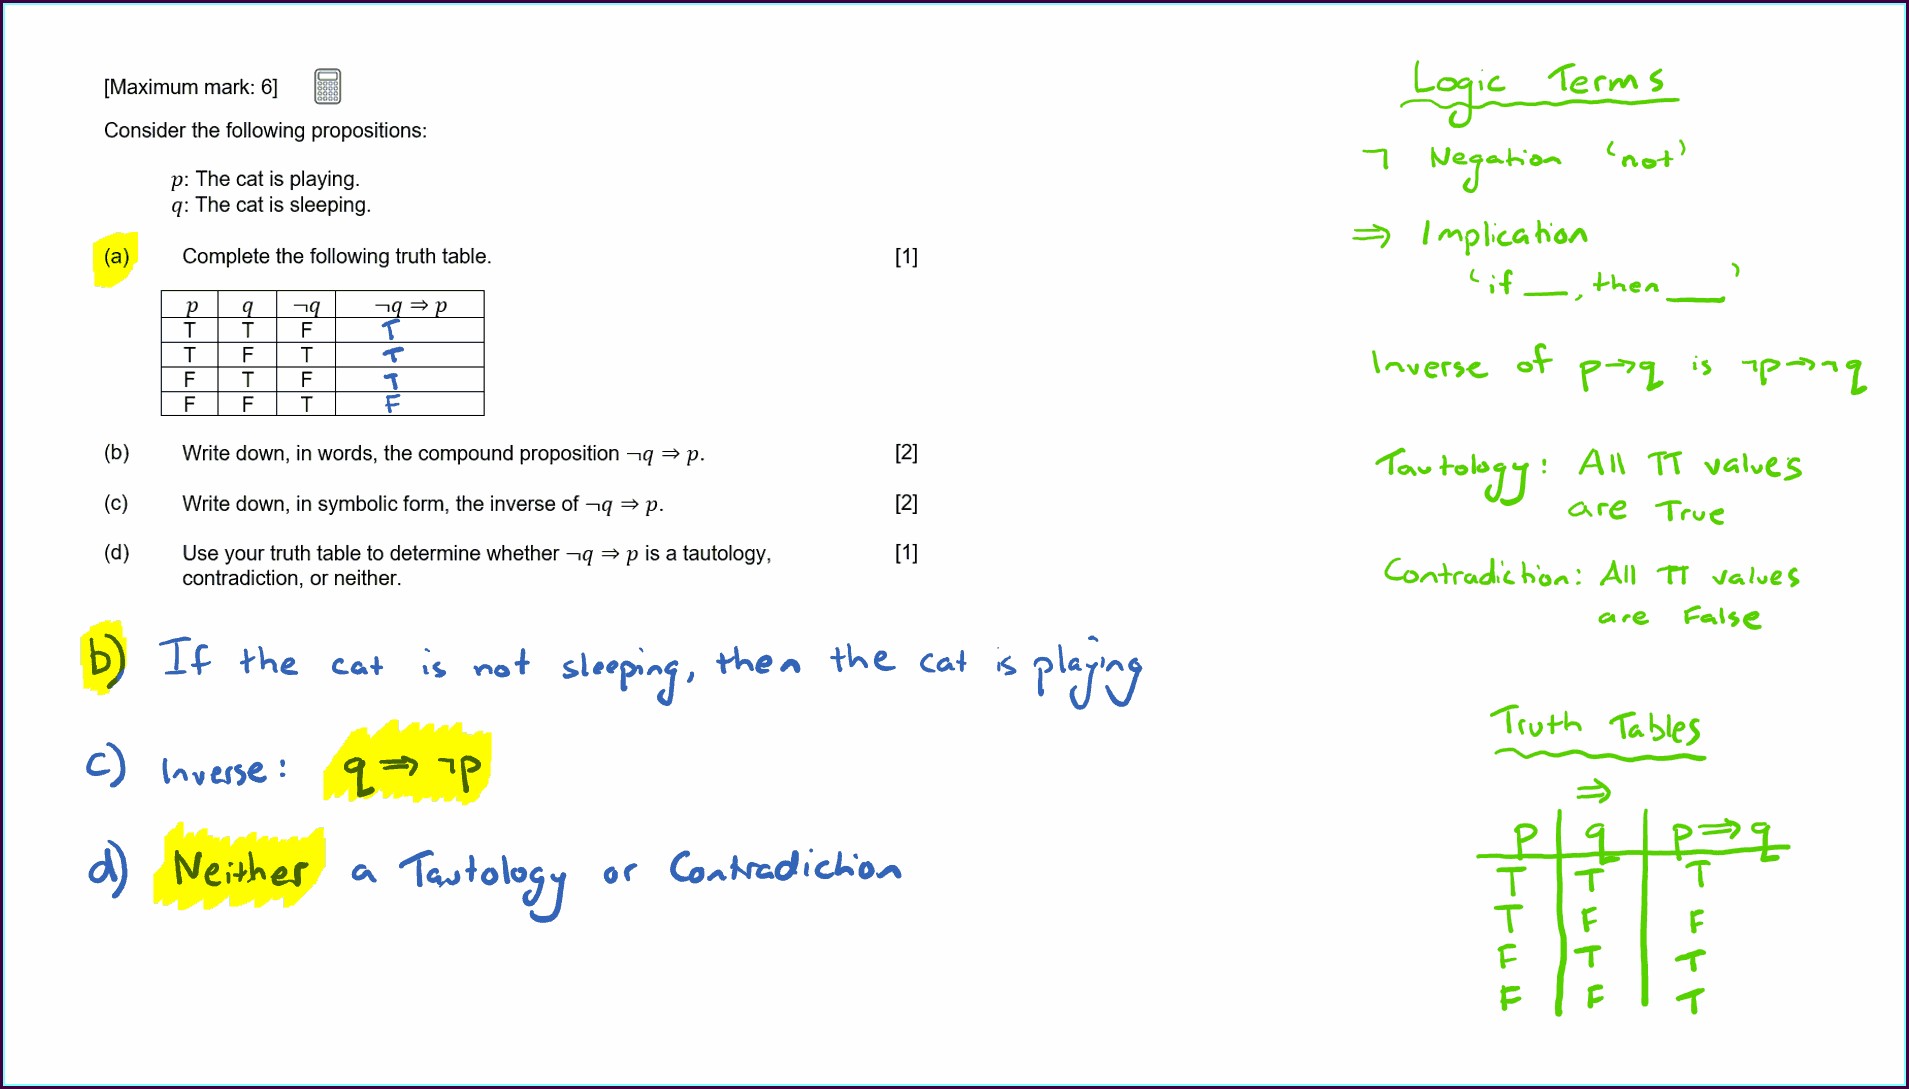 [Maximum mark: 6]
Consider the following propositions:
p: The cat is playing.
q: The cat is sleeping.
(a) Complete the following truth table. [1]
p q ¬q ¬q ⇒ p
T T F T
T F T T
F T F T
F F T F
(b) Write down, in words, the compound proposition ¬q ⇒ p. [2]
(c) Write down, in symbolic form, the inverse of ¬q ⇒ p. [2]
(d) Use your truth table to determine whether ¬q ⇒ p is a tautology, [1]
contradiction, or neither.
b) If the cat is not sleeping, then the cat is playing
c) Inverse: q ⇒ ¬p
d) Neither a Tautology or Contradiction
Logic Terms
¬ Negation 'not'
⇒ Implication
'if __, then __'
Inverse of p→q is ¬p→¬q
Tautology: All TT values
are True
Contradiction: All TT values
are False
Truth Tables
⇒
p q p⇒q
T T T
T F F
F T T
F F T